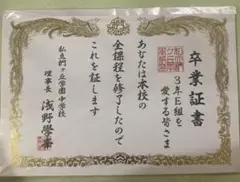 卒業証書
3年E組を
愛する皆さま
あなたは本校の
全課程を修了したので
これを証します
私立椚ヶ丘学園中学校
理事長 浅野學峯